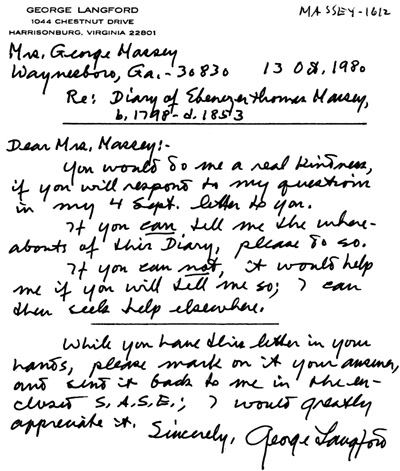 GEORGE LANGFORD
1044 CHESTNUT DRIVE
HARRISONBURG, VIRGINIA 22801
MASSEY-1612
Mrs. George Massey
Waynesboro, Ga.-30830 13 Oct, 1980
Re: Diary of Ebenezer Thomas Massey,
b. 1798-d. 1853
Dear Mrs. Massey:-
You would do me a real kindness,
if you will respond to my question
in my 4 Sept. letter to you.
If you can tell me the where-
abouts of this Diary, please do so.
If you can not, it would help
me if you will tell me so; I can
then seek help elsewhere.
While you have this letter in your
hands, please mark on it your answer,
and send it back to me in the en-
closed S.A.S.E.; I would greatly
appreciate it. Sincerely, George Langford